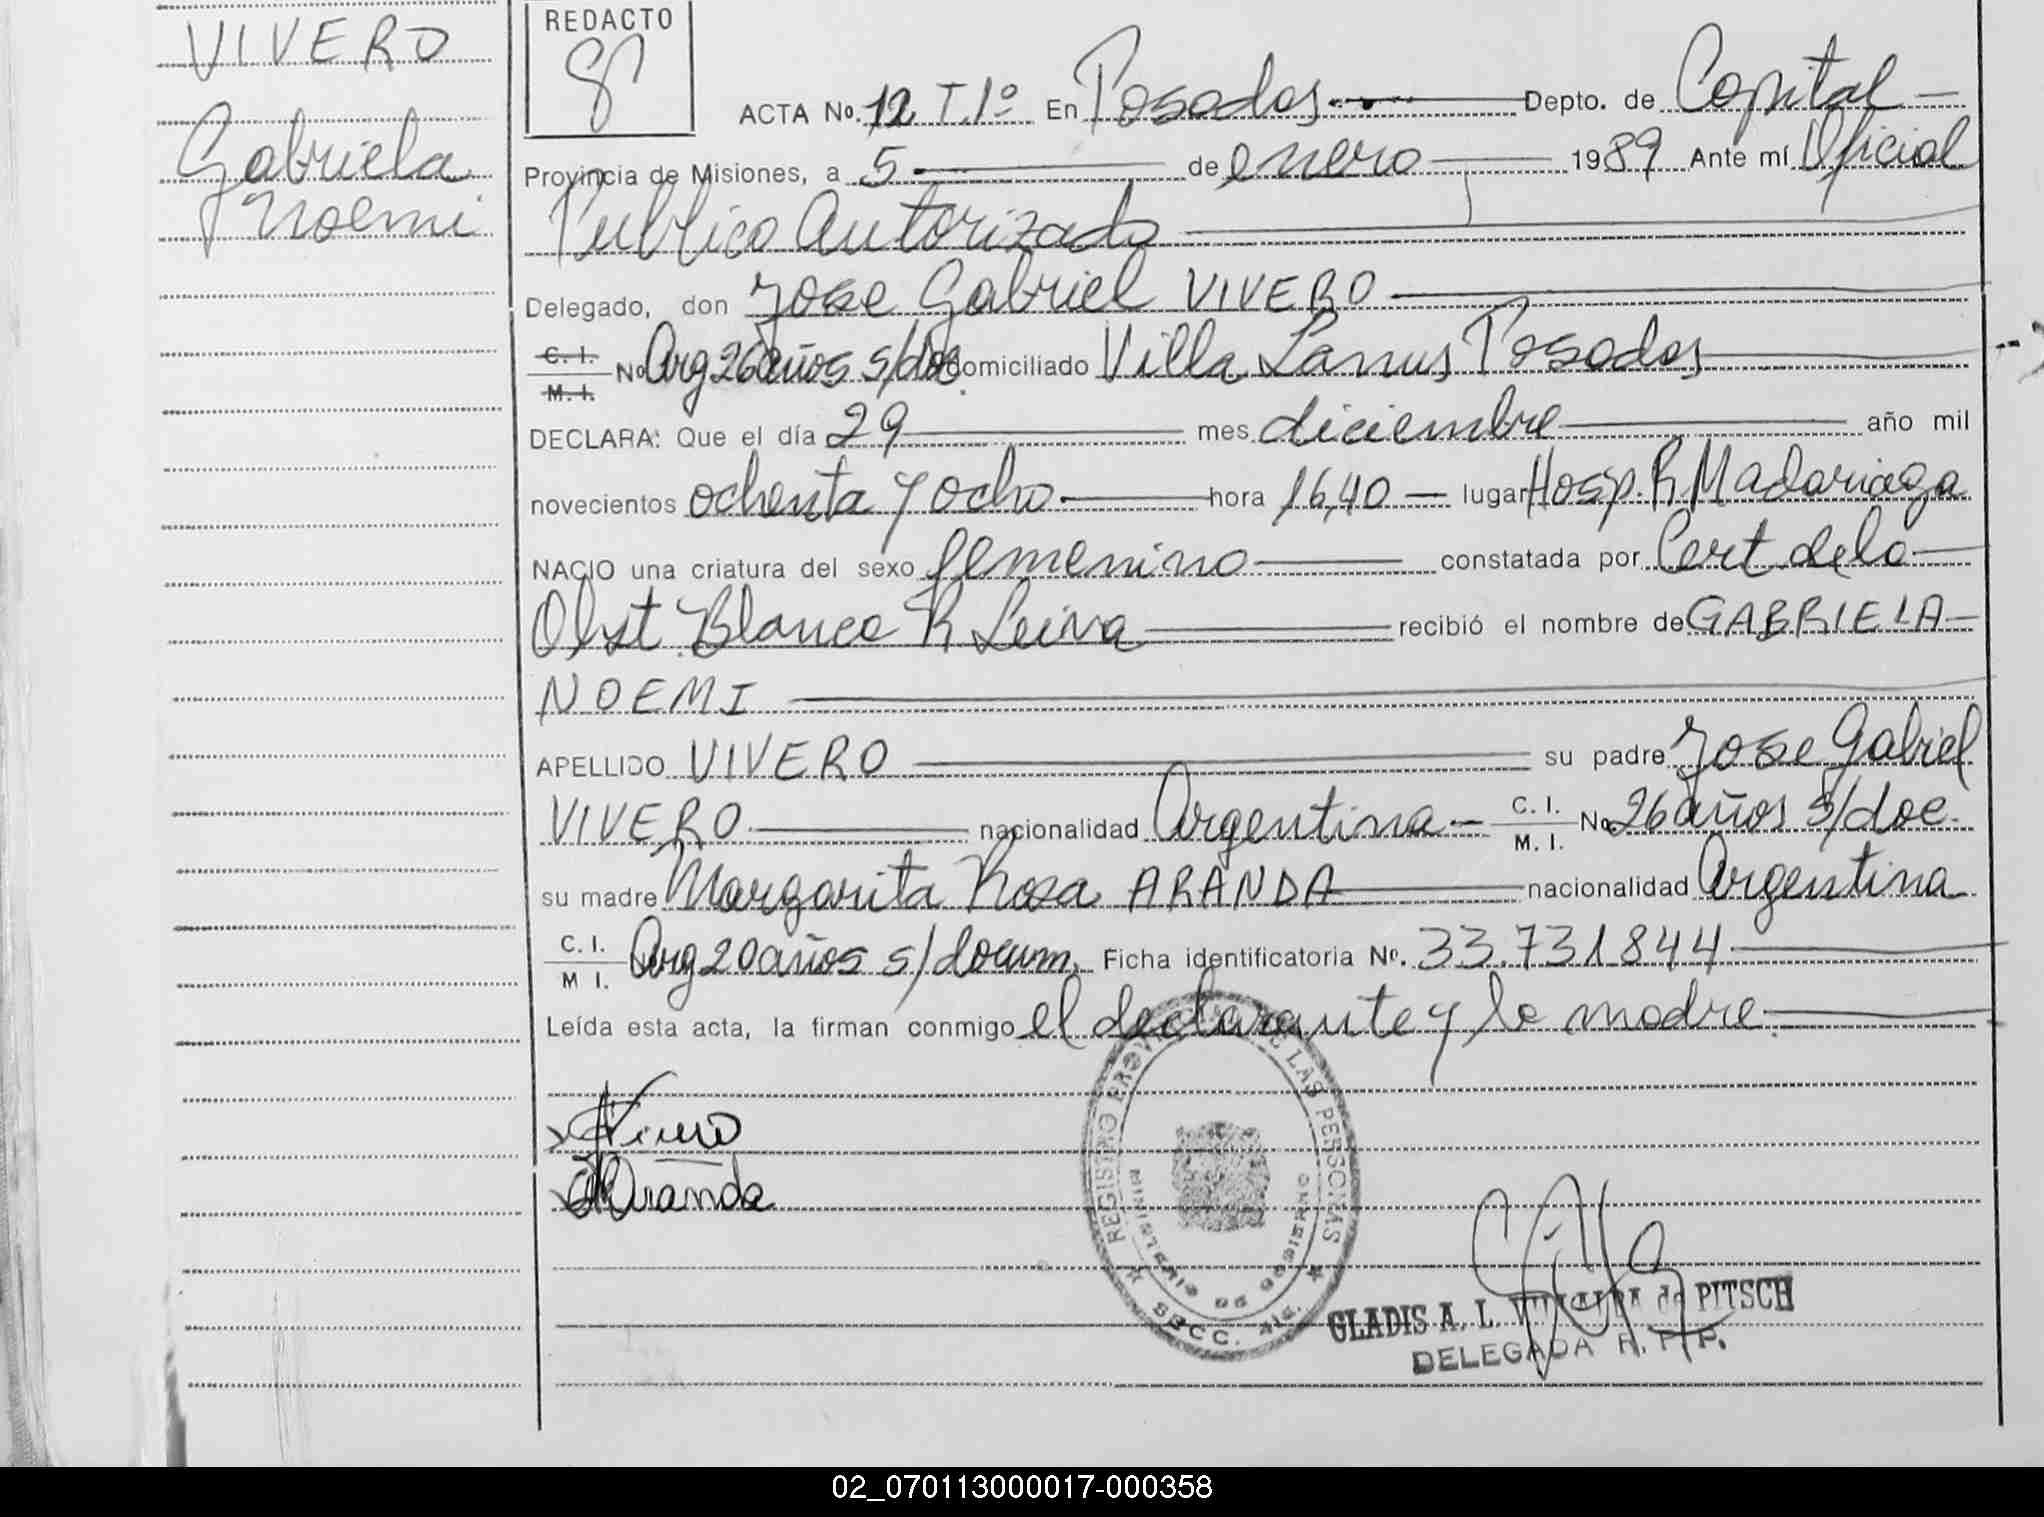 VIVERO
Gabriela
Noemi
REDACTO
ACTA No. 12 T.1º En Posadas Depto. de Capital
Provincia de Misiones, a 5 de enero 1989 Ante mí Oficial
Publico Autorizado
Delegado, don Jose Gabriel VIVERO
C. I. M. I. No Arg 26 años s/doc domiciliado Villa Lanus Posadas
DECLARA: Que el día 29 mes diciembre año mil
novecientos ochenta y ocho hora 16,40 lugar Hosp. R. Madariaga
NACIO una criatura del sexo femenino constatada por Cert. de la
Obst. Blanca R Leiva recibió el nombre de GABRIELA
NOEMI
APELLIDO VIVERO su padre Jose Gabriel
VIVERO nacionalidad Argentina C. I. M. I. No. 26 años s/doc.
su madre Margarita Rosa ARANDA nacionalidad Argentina
C. I. M I. Arg 20 años s/docum. Ficha identificatoria Nº. 33.731844
Leída esta acta, la firman conmigo el declarante y la madre.
Vivero
Aranda
REGISTRO PROVINCIAL DE LAS PERSONAS
MINISTERIO DE GOBIERNO
SECC.
GLADIS A. L. de PITSCH
DELEGADA R. P. P.
02_070113000017-000358